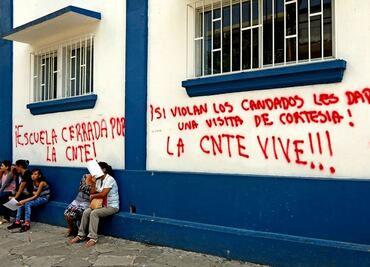 ¡ESCUELA CERRADA POR
LA CNTE!
¡SI VIOLAN LOS CANDADOS LES DAR
UNA VISITA DE CORTESIA!
LA CNTE VIVE!!!